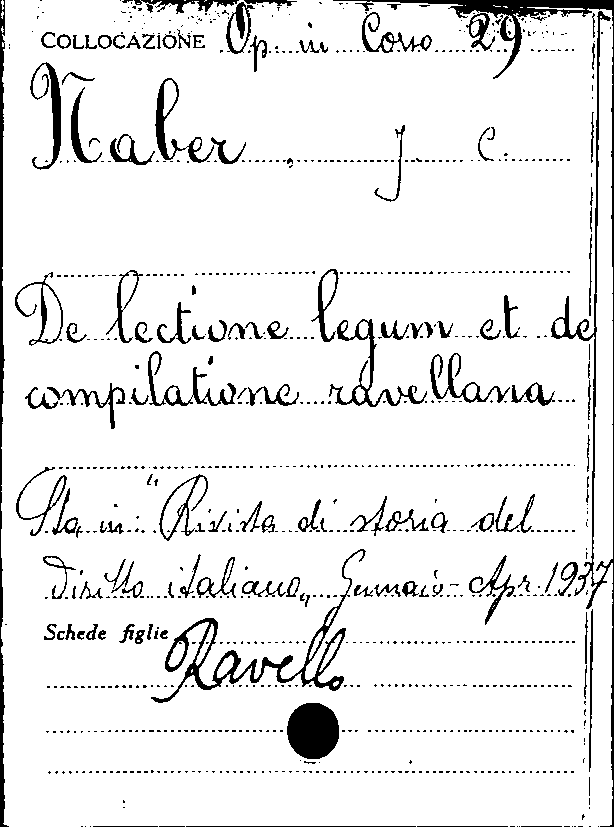 COLLOCAZIONE Op. in Corso 29
Naber, J. C.
De lectione legum et de
compilatione ravellana
Sta in: "Rivista di storia del
diritto italiano„ Gennaio-Apr. 1937
Schede figlie
Ravello